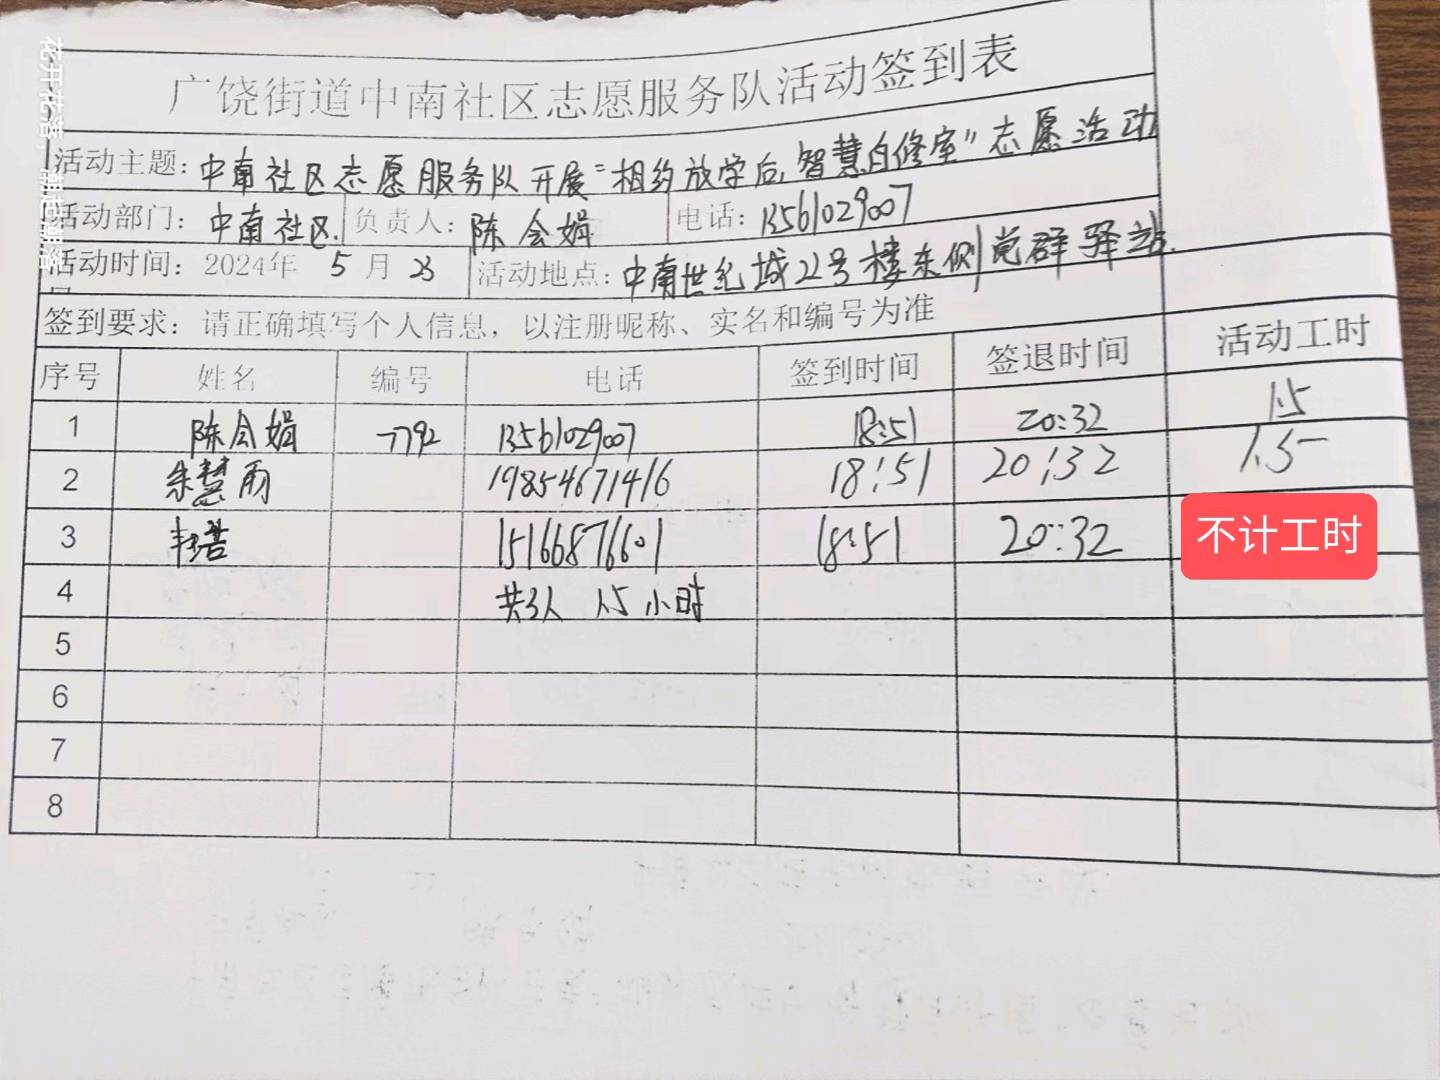 花开花落，朝起朝落
广饶街道中南社区志愿服务队活动签到表
活动主题：中南社区志愿服务队开展“相约放学后，智慧自修室”志愿活动
活动部门：中南社区. 负责人：陈会娟 电话：13561029007
活动时间：2024年 5 月 23 活动地点：中南世纪城22号楼东侧党群驿站.
签到要求：请正确填写个人信息，以注册昵称、实名和编号为准
序号 姓名 编号 电话 签到时间 签退时间 活动工时
1 陈会娟 7792 13561029007 18:51 20:32 1.5
2 朱慧雨 19854671416 18:51 20:32 1.5
3 15166876601 18:51 20:32 不计工时
4 共3人 1.5小时
5
6
7
8